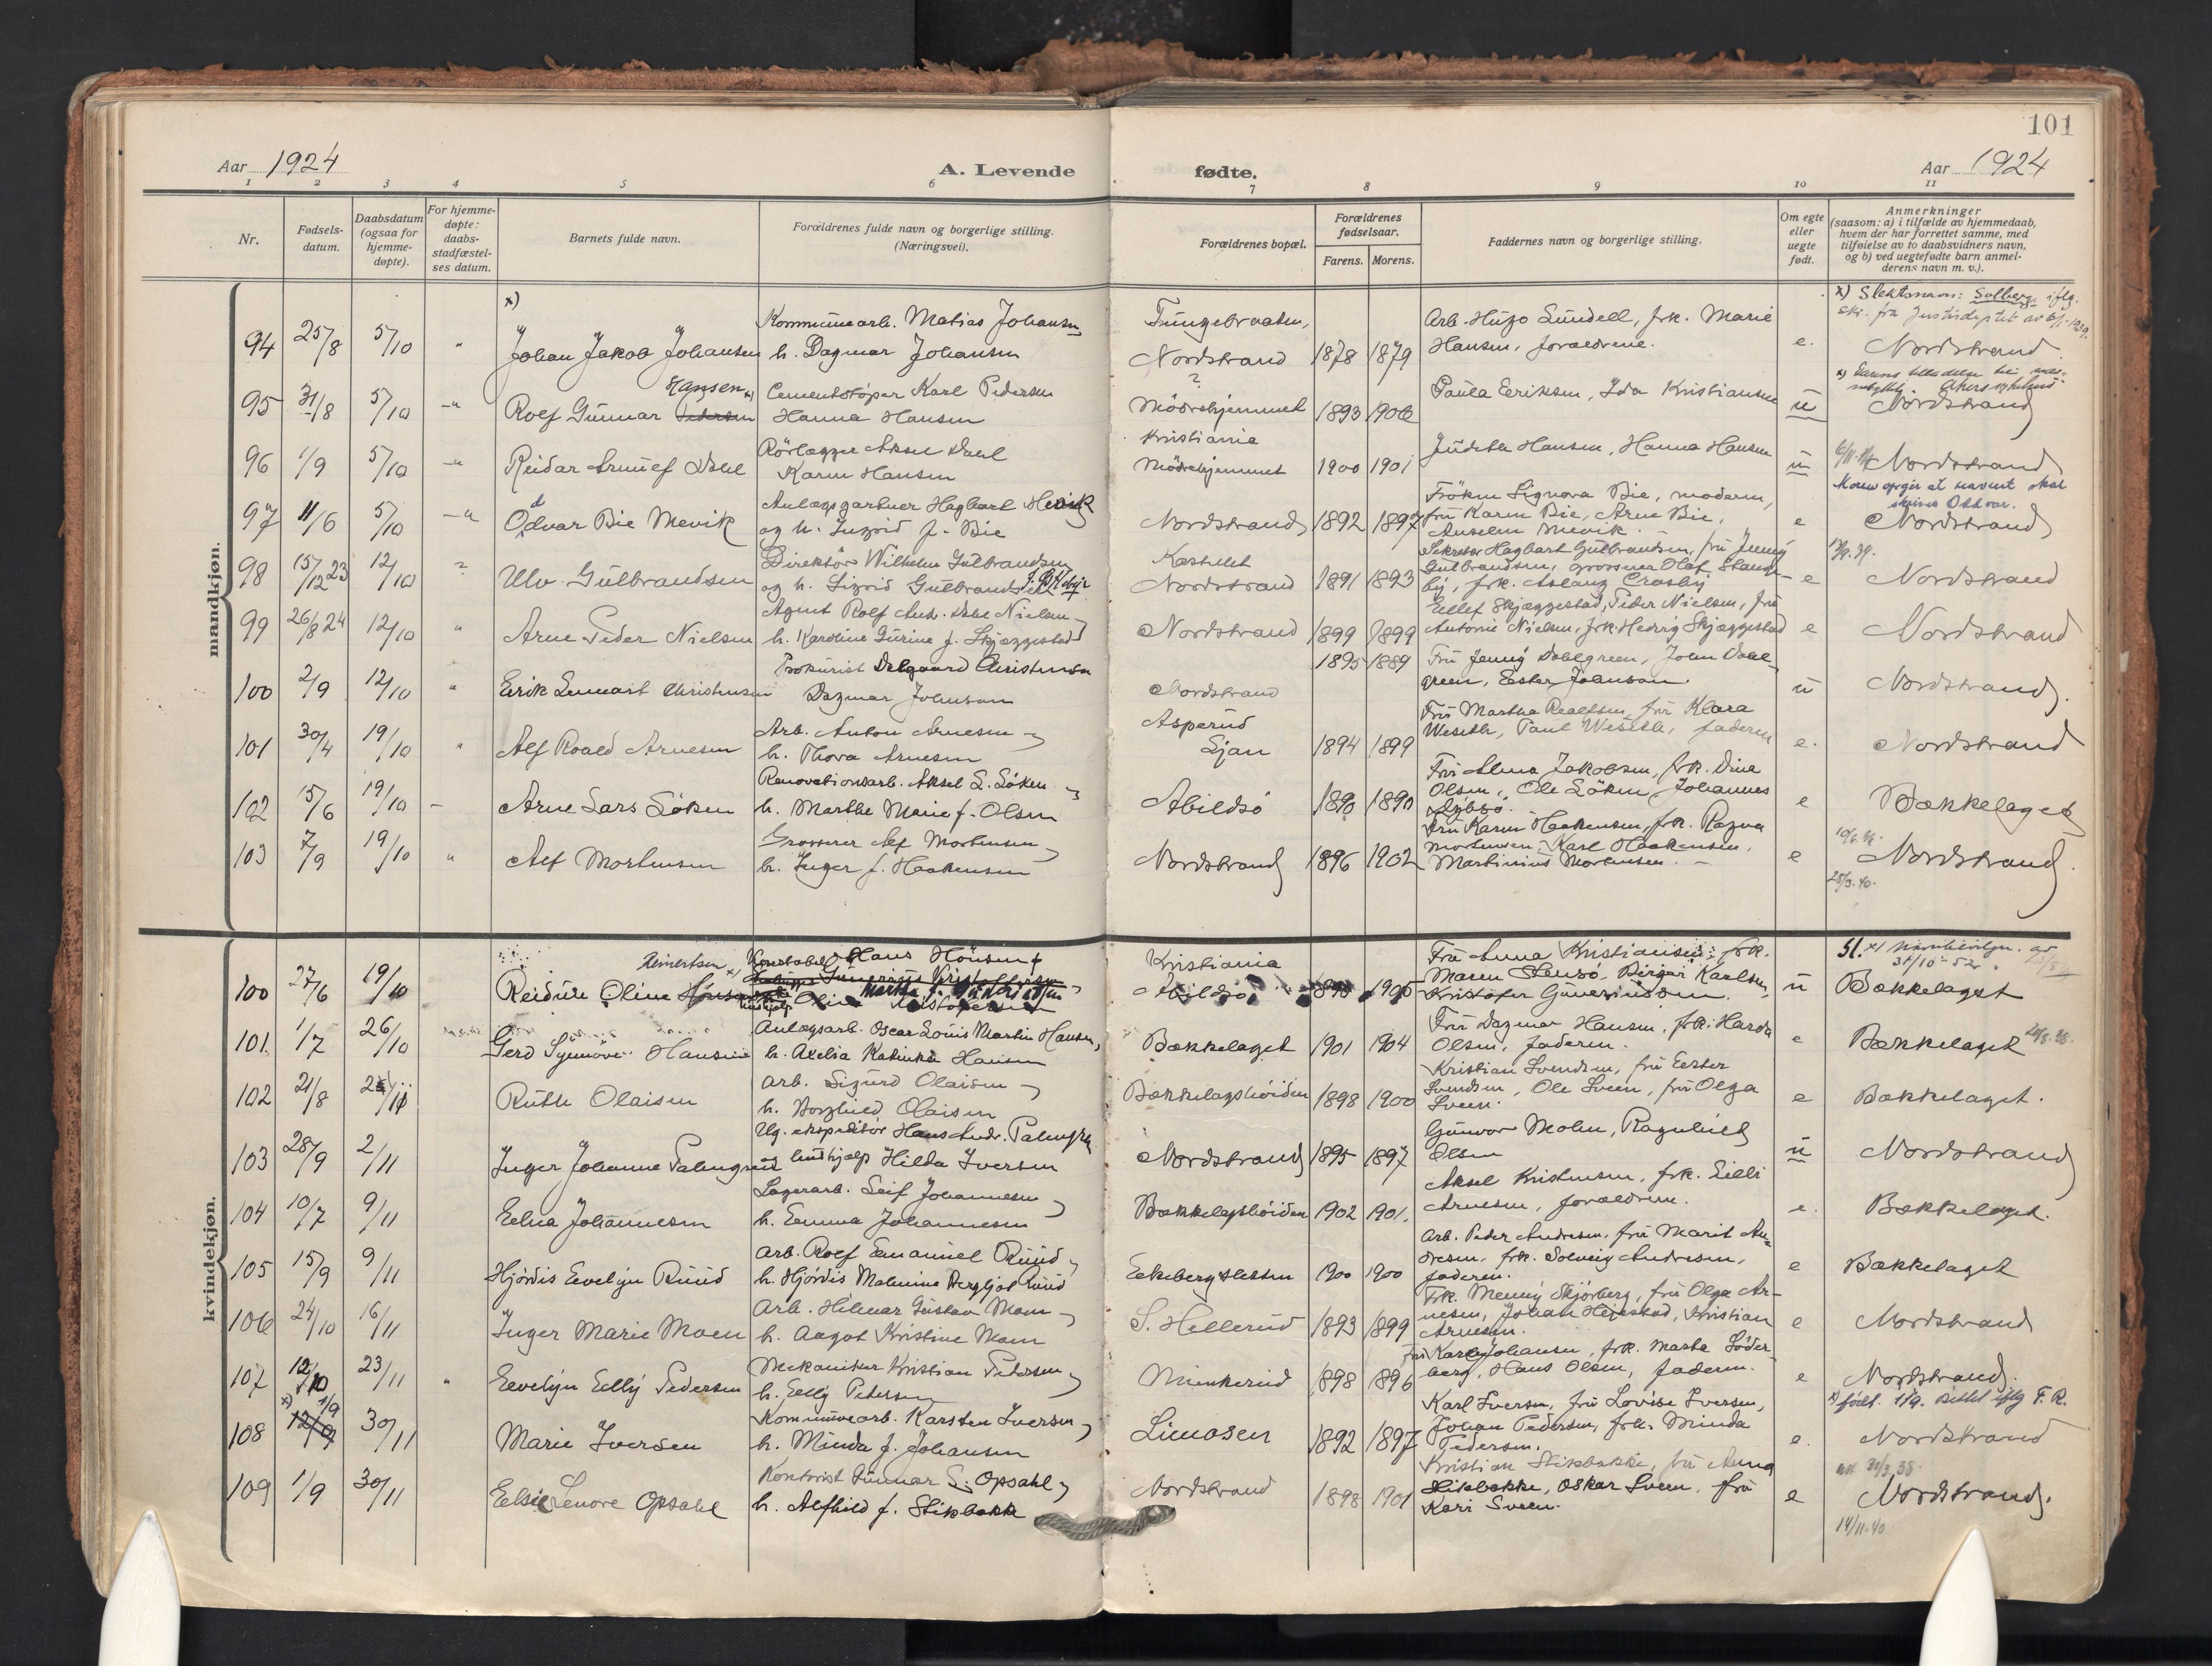 101
Aar 1924
A. Levende
fødte.
Aar 1924
1 2 3 4 5 6 7 8 9 10 11
Nr.
Fødsels-
datum.
Daabsdatum
(ogsaa for
hjemme-
døpte).
For hjemme-
døpte:
daabs-
stadfæstel-
ses datum.
Barnets fulde navn.
Forældrenes fulde navn og borgerlige stilling.
(Næringsvei).
Forældrenes bopæl.
Forældrenes
fødselsaar.
Farens. Morens.
Faddernes navn og borgerlige stilling.
Om egte
eller
uegte
født.
Anmerkninger
(saasom: a) i tilfælde av hjemmedaab,
hvem der har forrettet samme, med
tilføielse av to daabsvidners navn,
og b) ved uegtefødte barn anmel-
derens navn m. v.).
mandkjøn.
x)
Kommunearb. Matias Johansen
94 25/8 5/10 " Johan Jakob Johansen h. Dagmar Johansen
Nordstrand 1878 1879
Arb. Hugo Lundell, frk. Marie
Hansen, forældrene. e.
x) Slektsnavn: Solberg iflg.
Nordstrand.
Hansen x) Cementstøper Karl Pedersen
95 31/8 5/10 -"- Rolf Gunnar Pedersen Hanna Hansen
Mødrehjemmet 1893 1906
Paula Eriksen, Ida Kristiansen u
Nordstrand
Rørlægger Aksel Dahl
96 1/9 5/10 -"- Reidar Arnulf Dahl Karen Hansen
Kristiania
Mødrehjemmet 1900 1901
Judith Hansen, Hanna Hansen u
Nordstrand
Anlægsgartner Hagbart Mevik
97 11/6 5/10 -"- Odvar Bie Mevik og h. Ingrid f. Bie
Nordstrand 1892 1897
Frøken Signora Bie, moderen,
fru Karen Bie, Arne Bie,
Anselm Mevik. e
skrives Oddvar.
Nordstrand
Direktør Wilhelm Gulbrandsen
98 15/12 23 12/10 Ulv Gulbrandsen og h. Sigrid Gulbrandsen
Kastellet
Nordstrand 1891 1893
Sekretær Hagbart Gulbrandsen, fru Jenny
Gulbrandsen, grosserer Olaf Stange-
by, frk. Aslaug Crosby e
Nordstrand
Agent Rolf And. Dahl Nielsen
99 26/8 24 12/10 " Arne Peder Nielsen h. Karoline Gurine f. Skjæggestad
Nordstrand 1899 1899
Ellef Skjæggestad, Peder Nielsen, fru
Antonie Nielsen, frk. Hedvig Skjæggestad e
Nordstrand
Prokurist Dalgaard Christensen
100 2/9 12/10 " Erik Lennart Christensen Dagmar Johnsson
Nordstrand 1895 1889
Fru Jenny Dahlgreen, John Dahl-
green, Ester Johnsson. u
Nordstrand.
Arb. Anton Arnesen
101 30/4 19/10 " Alf Roald Arnesen h. Thora Arnesen
Asperud
Ljan 1894 1899
Fru Martha Realfsen, fru Klara
Weseth, Paul Weseth, faderen e.
Nordstrand
Renovationsarb. Aksel L. Løken
102 15/6 19/10 - Arne Lars Løken h. Marthe Marie f. Olsen
Abildsø 1890 1890
Fru Alma Jakobsen, frk. Dina
Olsen, Ole Løken, Johannes e
Bækkelaget
Grosserer Alf Mortensen
103 7/9 19/10 " Alf Mortensen h. Inger f. Haakensen
Nordstrand 1896 1902
Fru Karen Haakensen, frk. Ragna
Mortensen, Karl Haakensen,
Martinius Mortensen. e
Nordstrand.
25/3.40.
kvindekjøn.
Reinertsen x) Konstabel Hans Hönsen
100 27/6 19/10 Reidun Oline
Kristiania
Abildsø 1905
Fru Anna Kristiansen, frk.
Maren Stensø, Birger Karlsen,
Kristofer Guneriussen. u
31/10-52.
Bækkelaget
Anlægsarb. Oscar Louis Martin Hansen,
101 1/7 26/10 Gerd Synnøve Hansen h. Axelia Katinka Hansen
Bækkelaget 1901 1904
Fru Dagmar Hansen, frk. Harda
Olsen, faderen. e
Bækkelaget
Arb. Sigurd Olaisen
102 21/8 Ruth Olaisen h. Borghild Olaisen
Bækkelagshøiden 1898 1900
Kristian Svendsen, fru Ester
Svendsen, Ole Sveen, fru Olga
Sveen. e
Bækkelaget.
Ug. ekspeditør Hans Andr. Palmgren
103 28/9 2/11 Inger Johanne Palmgren og hushjælp Hilda Iversen
Nordstrand 1895 1897
Gunvor Molin, Ragnhild
Olsen u
Nordstrand
Lagerarb. Leif Johannesen
104 10/7 9/11 Edna Johannesen h. Emma Johannesen
Bækkelagshøiden 1902 1901.
Aksel Kristensen, frk. Lilli
Arnesen, forældrene. e.
Bækkelaget.
Arb. Rolf Emanuel Ruud
105 15/9 9/11 Hjørdis Evelyn Ruud h. Hjørdis Malmine Bergljot Ruud
Ekebergsletten 1900 1900
Arb. Peder Andresen, fru Marit An-
dresen, frk. Solveig Andresen,
faderen. e
Bækkelaget
Arb. Hilmar Gustav Moen
106 24/10 16/11 Inger Marie Moen h. Aagot Kristine Moen
S. Hellerud 1893 1899
Frk. Menny Skjørberg, fru Olga Ar-
nesen, Johan Hegestad, Kristian
Arnesen. e
Nordstrand
Mekaniker Kristian Pedersen
107 12/10 23/11 " Evelyn Elly Pedersen h. Elly Pedersen
Munkerud 1898 1896
Fru Karly Johansen, frk. Marta Søder-
berg, Hans Olsen, faderen. e
Nordstrand.
Kommunearb. Karsten Iversen
108 x) 1/9 30/11 Marie Iversen h. Minda f. Johansen
Limosen 1892 1897
Karl Iversen, fru Lovise Iversen,
Johan Pedersen, frk. Minda
Pedersen. e.
x) født 1/9. rettet iflg F. R.
Nordstrand
Kontorist Gunnar S. Opsahl
109 1/9 30/11 Elsie Lenore Opsahl h. Alfhild f. Stikbakke
Nordstrand 1898 1901
Kristian Stikbakke, fru Anna
Stikbakke, Oskar Sveen, fru
Kari Sveen. e
Nordstrand.
14/11-40